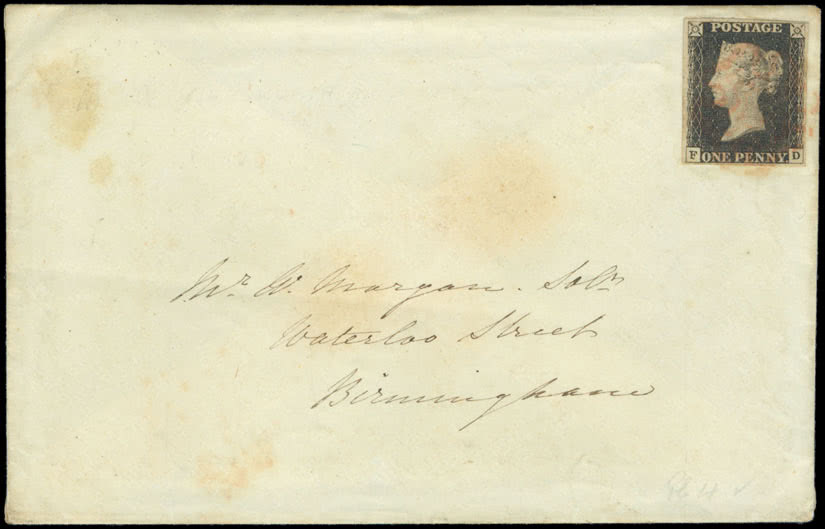 POSTAGE
F ONE PENNY D
Mr. W. Morgan. Solr
Waterloo Street
Birmingham